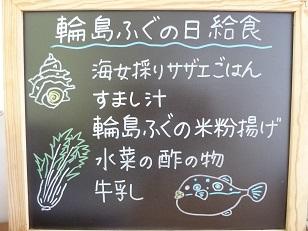 輪島ふぐの日給食
海女採りサザエごはん
すまし汁
輪島ふぐの米粉揚げ
水菜の酢の物
牛乳